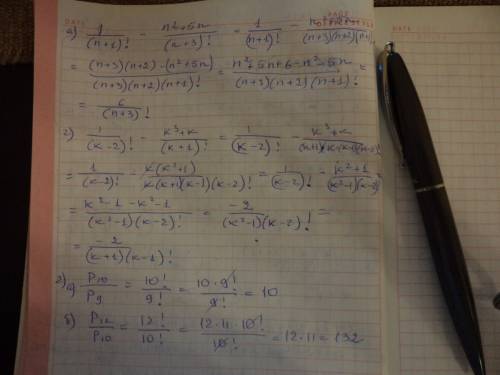 DATE PAGE DATE
а) 1/(n+1)! - (n²+5n)/(n+3)! = 1/(n+1)! - (n²+5n)/((n+3)(n+2)(n+1)!
= ((n+3)(n+2) - (n²+5n))/((n+3)(n+2)(n+1)!) = (n²+5n+6-n²-5n)/((n+3)(n+2)(n+1)!) =
= 6/(n+3)!
г) 1/(k-2)! - (k³+k)/(k+1)! = 1/(k-2)! - (k³+k)/((k+1)·k·(k-1)(k-2)!)
= 1/(k-2)! - k(k²+1)/(k(k+1)(k-1)(k-2)!) = 1/(k-2)! - (k²+1)/((k²-1)(k-2)!)
= (k²-1-k²-1)/((k²-1)(k-2)!) = -2/((k²-1)(k-2)!) =
= -2/((k+1)(k-1)!)
а) P₁₀/P₉ = 10!/9! = 10·9!/9! = 10
б) P₁₂/P₁₀ = 12!/10! = 12·11·10!/10! = 12·11 = 132